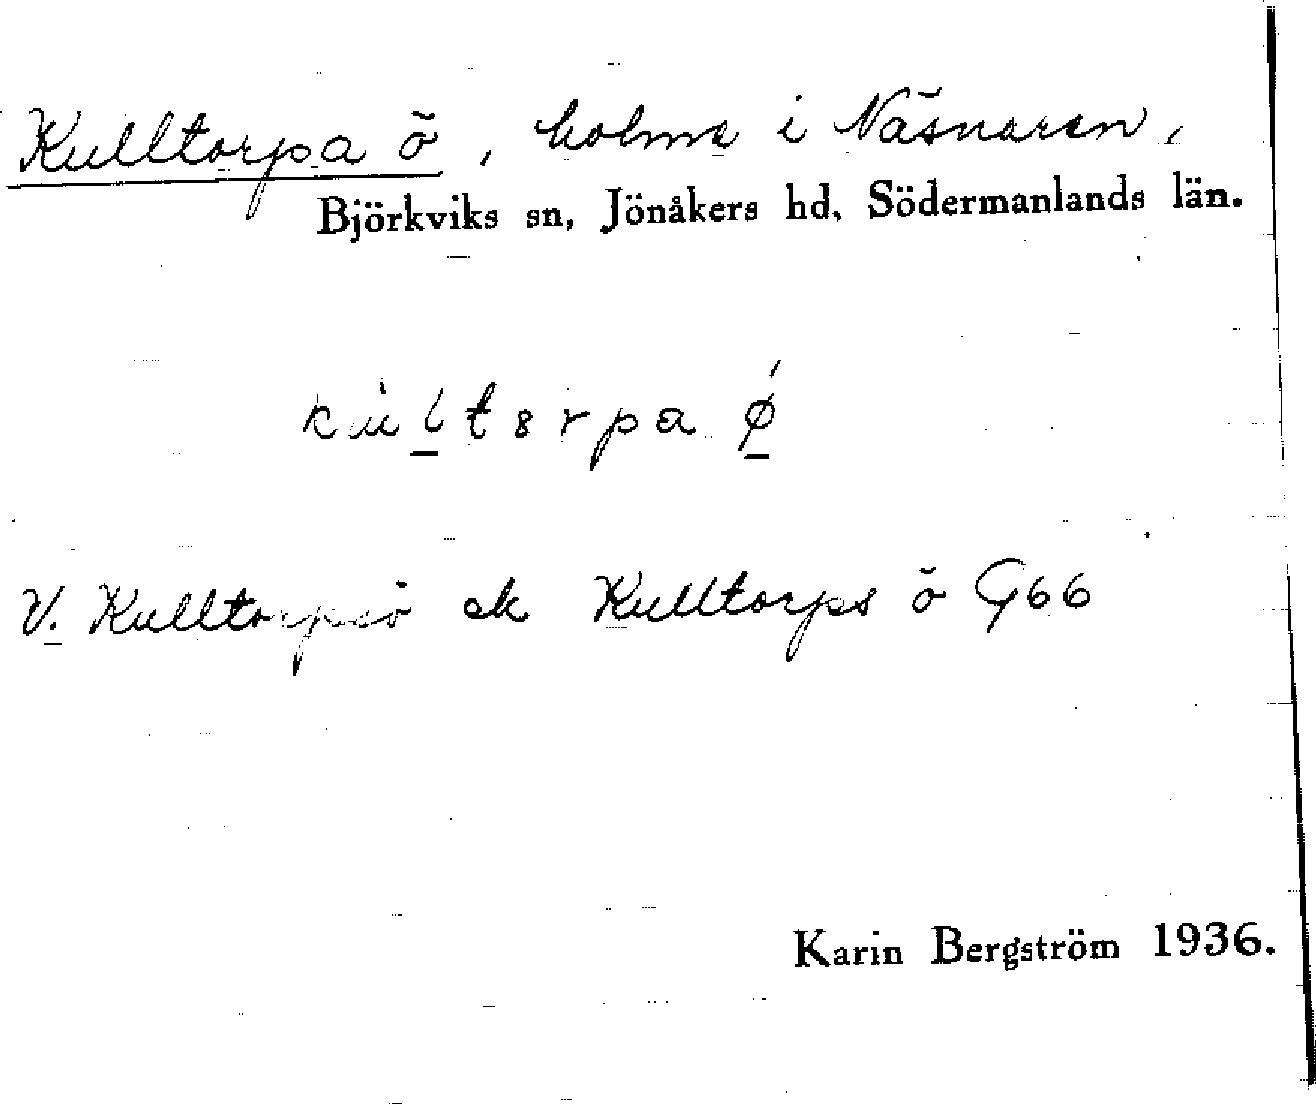 Kulltorpa ö, holme i Näsnaren,
Björkviks sn, Jönåkers hd, Södermanlands län.
kùltɞrpa ǿ
V. Kulltorpsö ek Kulltorps ö G66
Karin Bergström 1936.